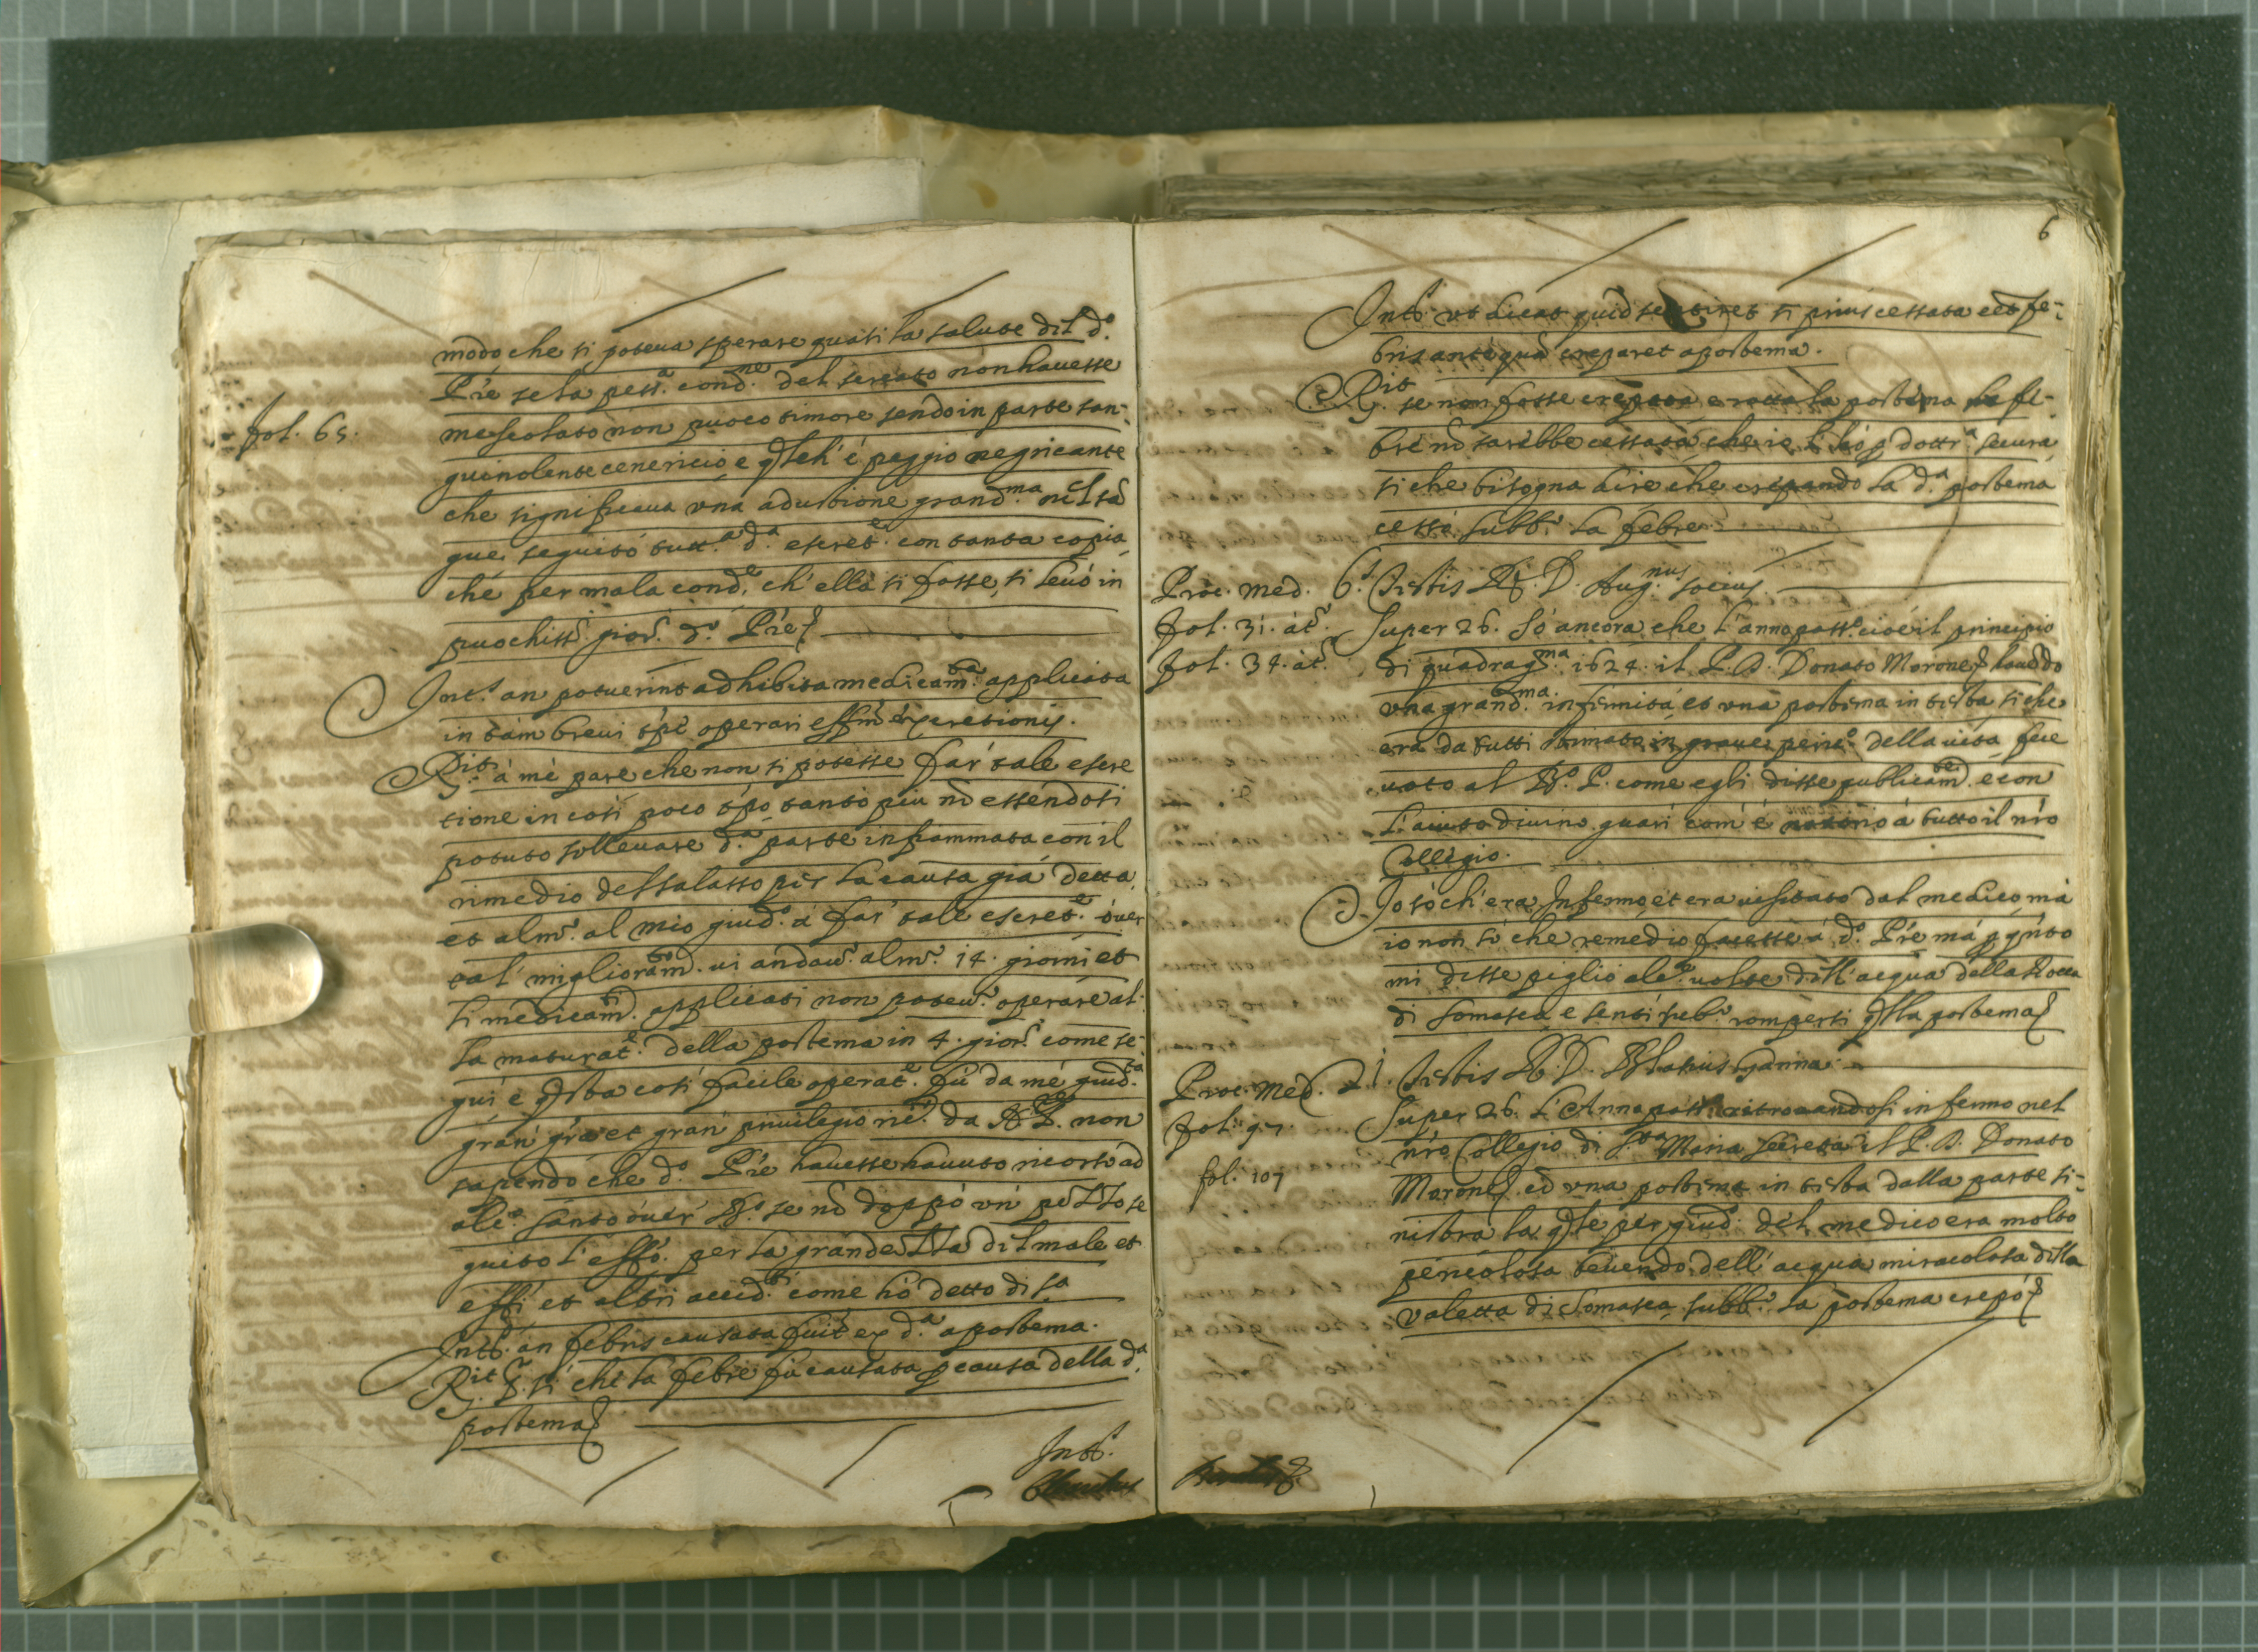 modo che si poteua sperare quasi la salute del d.º
Pre se la pess.ª cond.ne del screato non hauesse
fol. 65.
mescolato non puoco timore sendo in parte san-
guinolente cenericio e qlch'é peggio negricante
che significaua una adustione grand.ma nel sã
gue, seguitò tutt.ª d.ª escret.e con tanta copia
che per mala cond.e ch'ella si fosse, si leuò in
puochiss.i gior.i d.º Pre
Int.s an potuerint adhibita medicam.ta applicata
in tam breui tpe operari effm excretionis.
Rit á mè pare che non si potesse far tale escre
tione in così poco tpo tanto più nõ essendosi
potuto solleuare d.ª parte infiammata con il
rimedio del salasso per la causa già detta,
et alm.º al mio giud.º á far tale escret.e óuer
tal miglioram.to ui andau.º alm.º 14. giorni et
li medicam.ti applicati non poteu.º operare al-
la maturat.e della postema in 4. gior.i come se-
gui e qsta così facile operat.e fù da mé giud.ta
gran gra et gran priuilegio ric.to da non
sapendo che d.º Pre hauesse hauuto ricorso ad
alc.º santo óuer B.º se nõ doppó un pezzo se
guito l'effo. per la grandezza del male et
effi et altri accid.ti come hò detto di sa
Intt.s an febris causata fuit ex d.ª apostema.
Rit si che la febre fù causata p causa della d.ª
postema
Intt.s
6
Intt.s ut dicat quid sentiret si prius cessata eet fe-
bris antequã creparet apostema.
Rit se non fosse crepata e rotta la postema la fe-
bre nõ sarebbe cessata, che io l'hó p dottr.ª sicura
si che bisogna dire che crepando la d.ª postema
cessá subb.º la febre
Proc. med. 6.s Testis R. D. Aug.nus socius
fol. 31. át.º
Super 26. só ancora che l'anno pass.º cioé il principio
fol. 34. át.º
di quadrag.ma 1624. il P. D. Donato Morone hauẽdo
una grand.ma infirmitá et una postema in testa si che
era da tutti stimato in graue peric.º della uita fece
uoto al B.º P. come egli disse publicam.te e con
l'aiuto diuino guarì com'é notorio á tutto il nro
Collegio.
Io só ch'era Infermo, et era uisitato dal medico, má
io non só che remedio facesse á d.º Pre má p qnto
mi disse piglió alc.e uolte dell'acqua della Rocca
di Somasca e sentí sub.º rompersi qlla postema
Proc. Med. 21. Testis R. D. Blasius Ganna
fol. 97.
Super 26. L'Anno pass.º ritrouandosi infermo nel
nro Collegio di S.ta Maria Secreta il P. D. Donato
fol. 107
Morone cõ una postema in testa dalla parte si-
nistra la qle per giud.º del medico era molto
pericolosa beuendo dell'acqua miracolosa della
valetta di Somasca subb.º la postema crepò